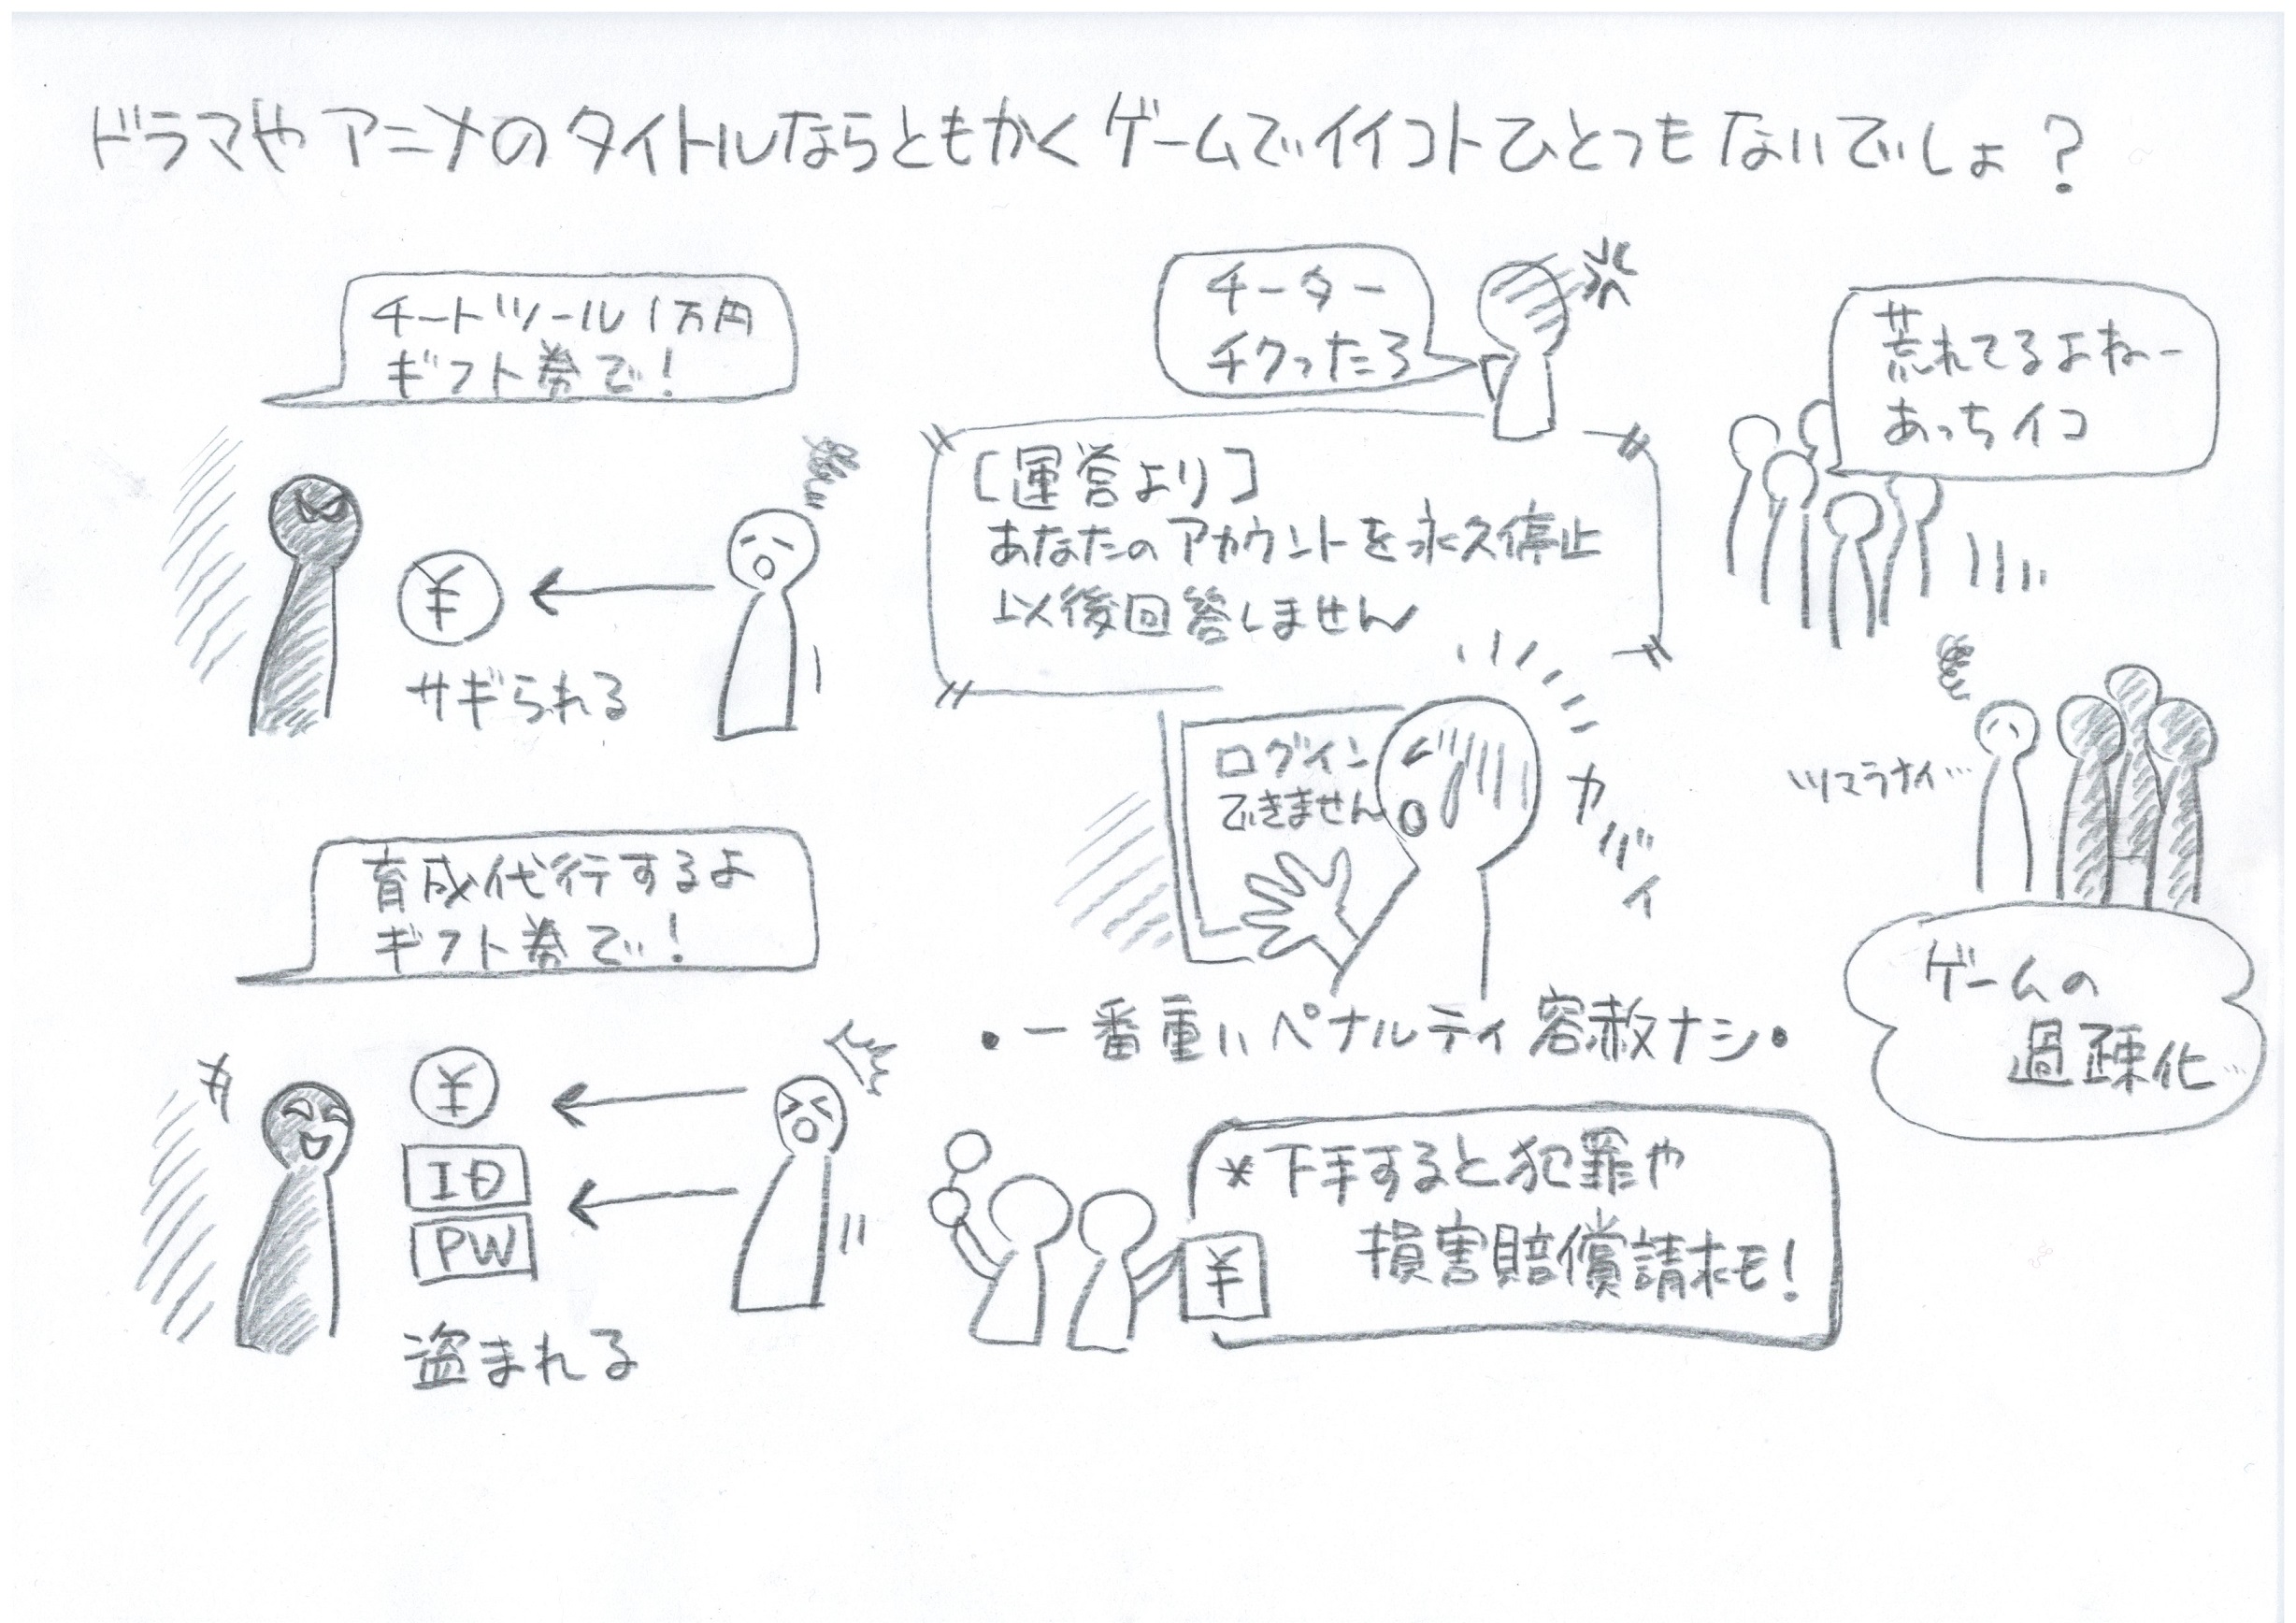 ドラマやアニメのタイトルならともかくゲームでイイコトひとつもないでしょ？
チートツール1万円
ギフト券で！
¥
サギられる
育成代行するよ
ギフト券で！
¥
ID
PW
盗まれる
チーター
チクったろ
[運営より]
あなたのアカウントを永久停止
以後回答しません
ログイン
できません
ガバイ
・一番重いペナルティ容赦ナシ・
*下手すると犯罪や
損害賠償請求モ！
¥
荒れてるよねー
あっちイコ
ツマラナイ…
ゲームの
過疎化…